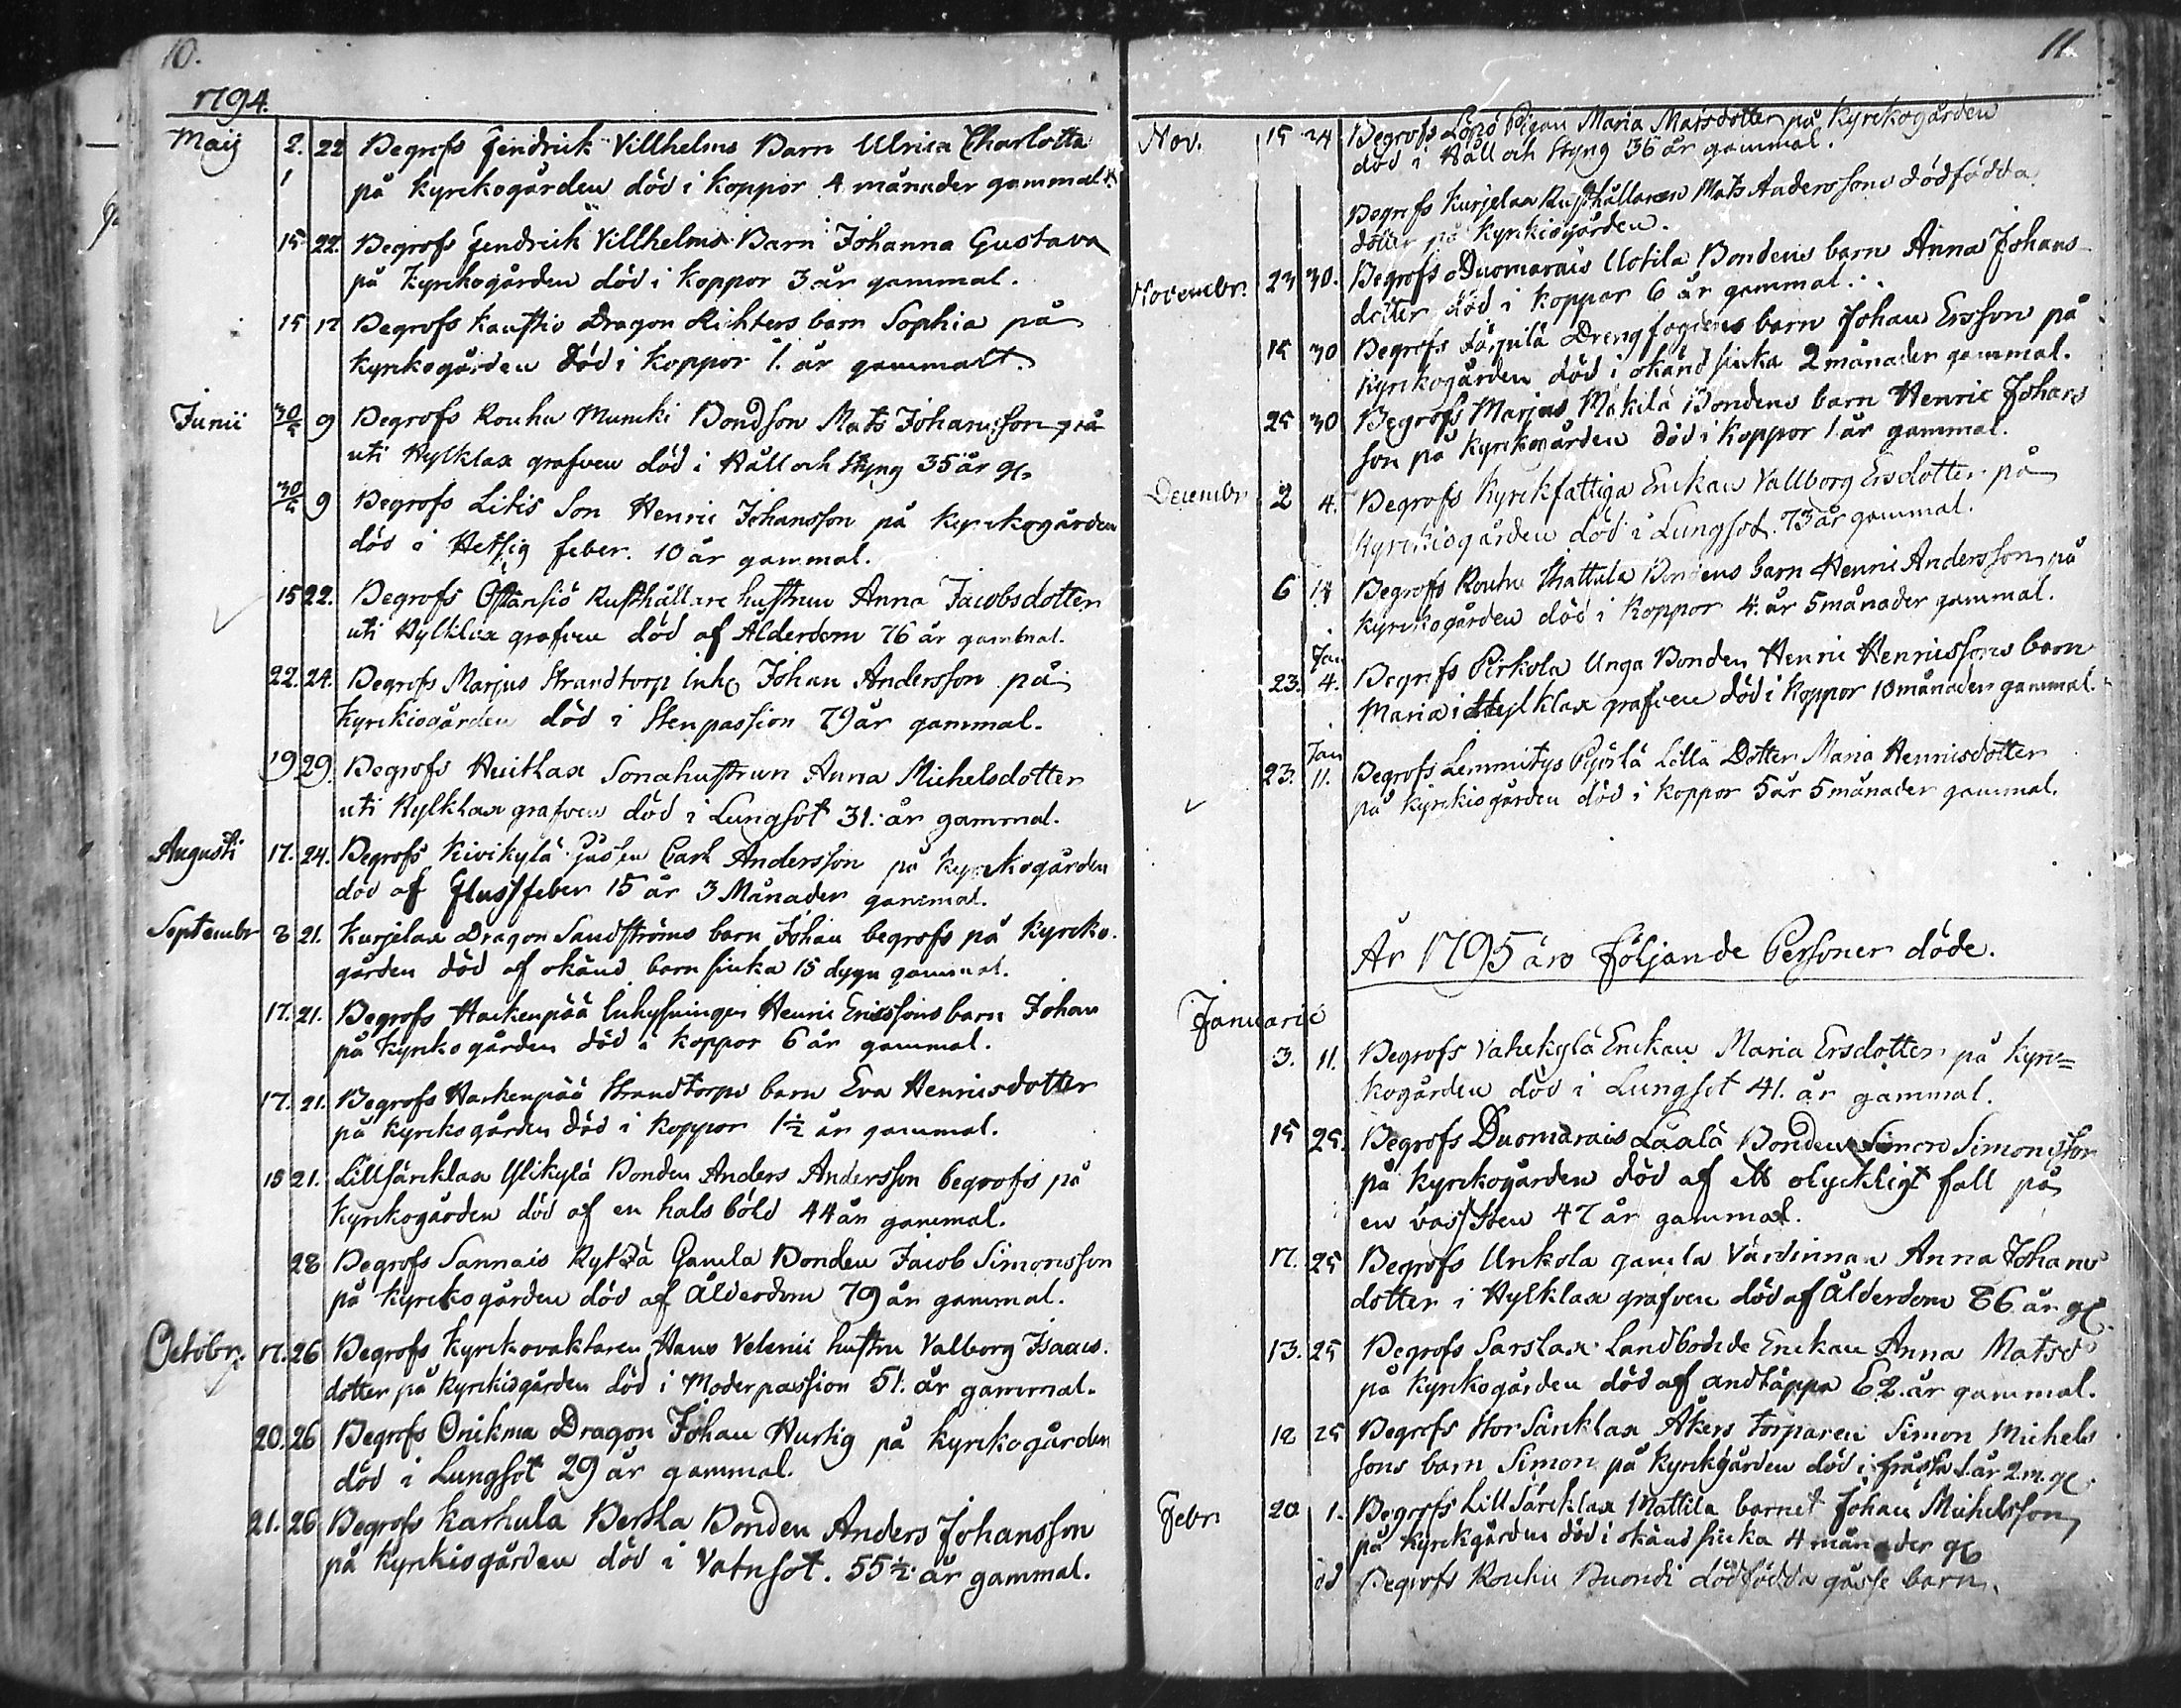 10.
1794.
Maij 2. 22 Begrofs Fendrick Villhelms Barn Ulrica Charlotta
1 på kyrckogården död i koppor 4 månader gammalt.
15 22. Begrofs Fendrick Villhelms Barn Johanna Gustava
på kyrckogården död i koppor 3 år gammal.
15 17 Begrofs Dragon Richters barn Sophia på
kyrckogården död i koppor 1. år gammalt.
Junii 30/5 9 Begrofs Rouhu Muncki Bondson Mats Johansson
uti Hylklax grafven död i Håll och Styng 35 år gl.
30/5 9 Begrofs Litis Son Henric Johansson på kyrckogården
död i Hetsig feber. 10 år gammal.
15 22. Begrofs Öfransiö Rusthållare hustrun Anna Jacobsdotter
uti Hylklax grafven död af Ålderdom 76 år gammal.
22. 24. Begrofs Marjus Strandtorp Inh. Johan Andersson på
kyrckiogården död i Stenpassion 79 år gammal.
19 29. Begrofs Sonahustrun Anna Michelsdotter
uti Hylklax grafven död i Lungsot 31. år gammal.
Augusti 17. 24. Begrofs Kivikylä Gåssen Carl Andersson på kyrckogården
död af flussfeber 15 år 3 Månader gammal.
Septembr 8 21. Kurjelax Dragon Sandströms barn Johan begrofs på kyrcko-
gården död af okänd barn siuka 15 dygn gammal.
17. 21. Begrofs Harkenpää Inhysningen Henric Ericssons barn Johan
på kyrckogården död i koppor 6 år gammal.
17. 21. Begrofs Harkenpää Strandtorps barn Eva Henricsdotter
på kyrckogården död i koppor 1½ år gammal.
15 21. Lillsäreklax Ylikylä Bonden Anders Andersson begrofs på
kyrckogården död af en hals böld 44 år gammal.
28 Begrofs Sannais Gamla Bonden Jacob Simonsson
på kyrckogården död af Ålderdom 79 år gammal.
Octobr. 17. 26 Begrofs kyrckovaktaren Hans Velenii hustru Valborg Isaacs-
dotter på kyrckiogården död i Moderpassion 51. år gammal.
20. 26 Begrofs Onikma Dragon Johan Hurtig på kyrckogården
död i Lungsot 29 år gammal.
21. 26 Begrofs Karhula Bertla Bonden Anders Johansson
på kyrckiogården död i Vatnsot. 55½ år gammal.
11
Nov. 15 24 Begrofs Löpö Pigan Maria Matsdotter på kyrckogården
död i Håll och Styng 36 år gammal.
Begrofs Kurjelax Rusthållaren Mats Anderssons dödfödda
dotter på kyrckiogården.
Novembr. 23 30. Begrofs Duomarais Uotila Bondens barn Anna Johans
dotter död i koppor 6 år gammal.
15 30 Begrofs Järjulä Drengfogdens barn Johan Ersson på
kyrckogården död i okänd siuka 2 månader gammal.
25 30 Begrofs Marjus Mäkilä Bondens barn Henric Johans
son på kyrckogården död i koppor 1 år gammal.
Decembr 2 4. Begrofs kyrckfattiga Enckan Vallborg Ersdotter på
kyrckiogården död i Lungsot. 73 år gammal.
6 14 Begrofs Rouhu Skattula Bondens barn Henric Andersson på
kyrckogården död i koppor 4. år 5 månader gammal.
Jan
23. 4. Begrofs Pirkola Unga Bonden Henric Henricssons barn
Maria i Hylklax grafven död i koppor 10 månader gammal.
Jan
23. 11. Begrofs Lemmitys Pyölä Lilla Dotter Maria Henricsdotter
på kyrckiogården död i koppor 5 år 5 månader gammal.
År 1795 äro följande Personer döde.
Januarii
3. 11. Begrofs Vahekylä Enckan Maria Ersdotter på kyrc=
kogården död i Lungsot 41. år gammal.
15 25. Begrofs Duomarais Laalä Bonden Simon Simonsson
på kyrckogården död af ett olyckligt fall på
en vass Sten 47 år gammal.
17. 25 Begrofs Unkola gamla Värdinnan Anna Johans
dotter i Hylklax grafven död af Ålderdom 86. år gl.
13. 25 Begrofs Sarslax Landbonde Enckan Anna Matsd
på kyrckogården död af andtäppa 62. år gammal.
12 25 Begrofs Stor Särcklax Åkers torparen Simon Michels
sons barn Simon på kyrckgården död i frässa 1. år 2. m. gl.
Febr. 20 1. Begrofs Lill Särcklax Mattila barnet Johan Michelsson
på kyrckgården död i okänd siuka 4 månader gl
dd Begrofs Rouhu Buondi dödfödda gåsse barn.